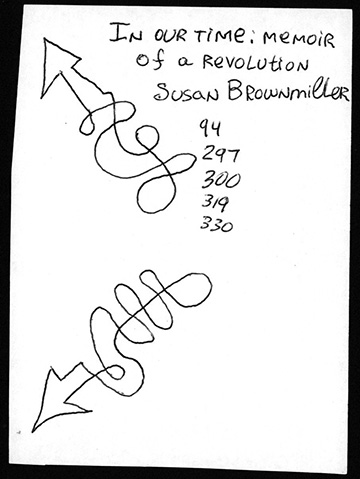 In our time: memoir
of a revolution
Susan Brownmiller
94
297
300
319
330